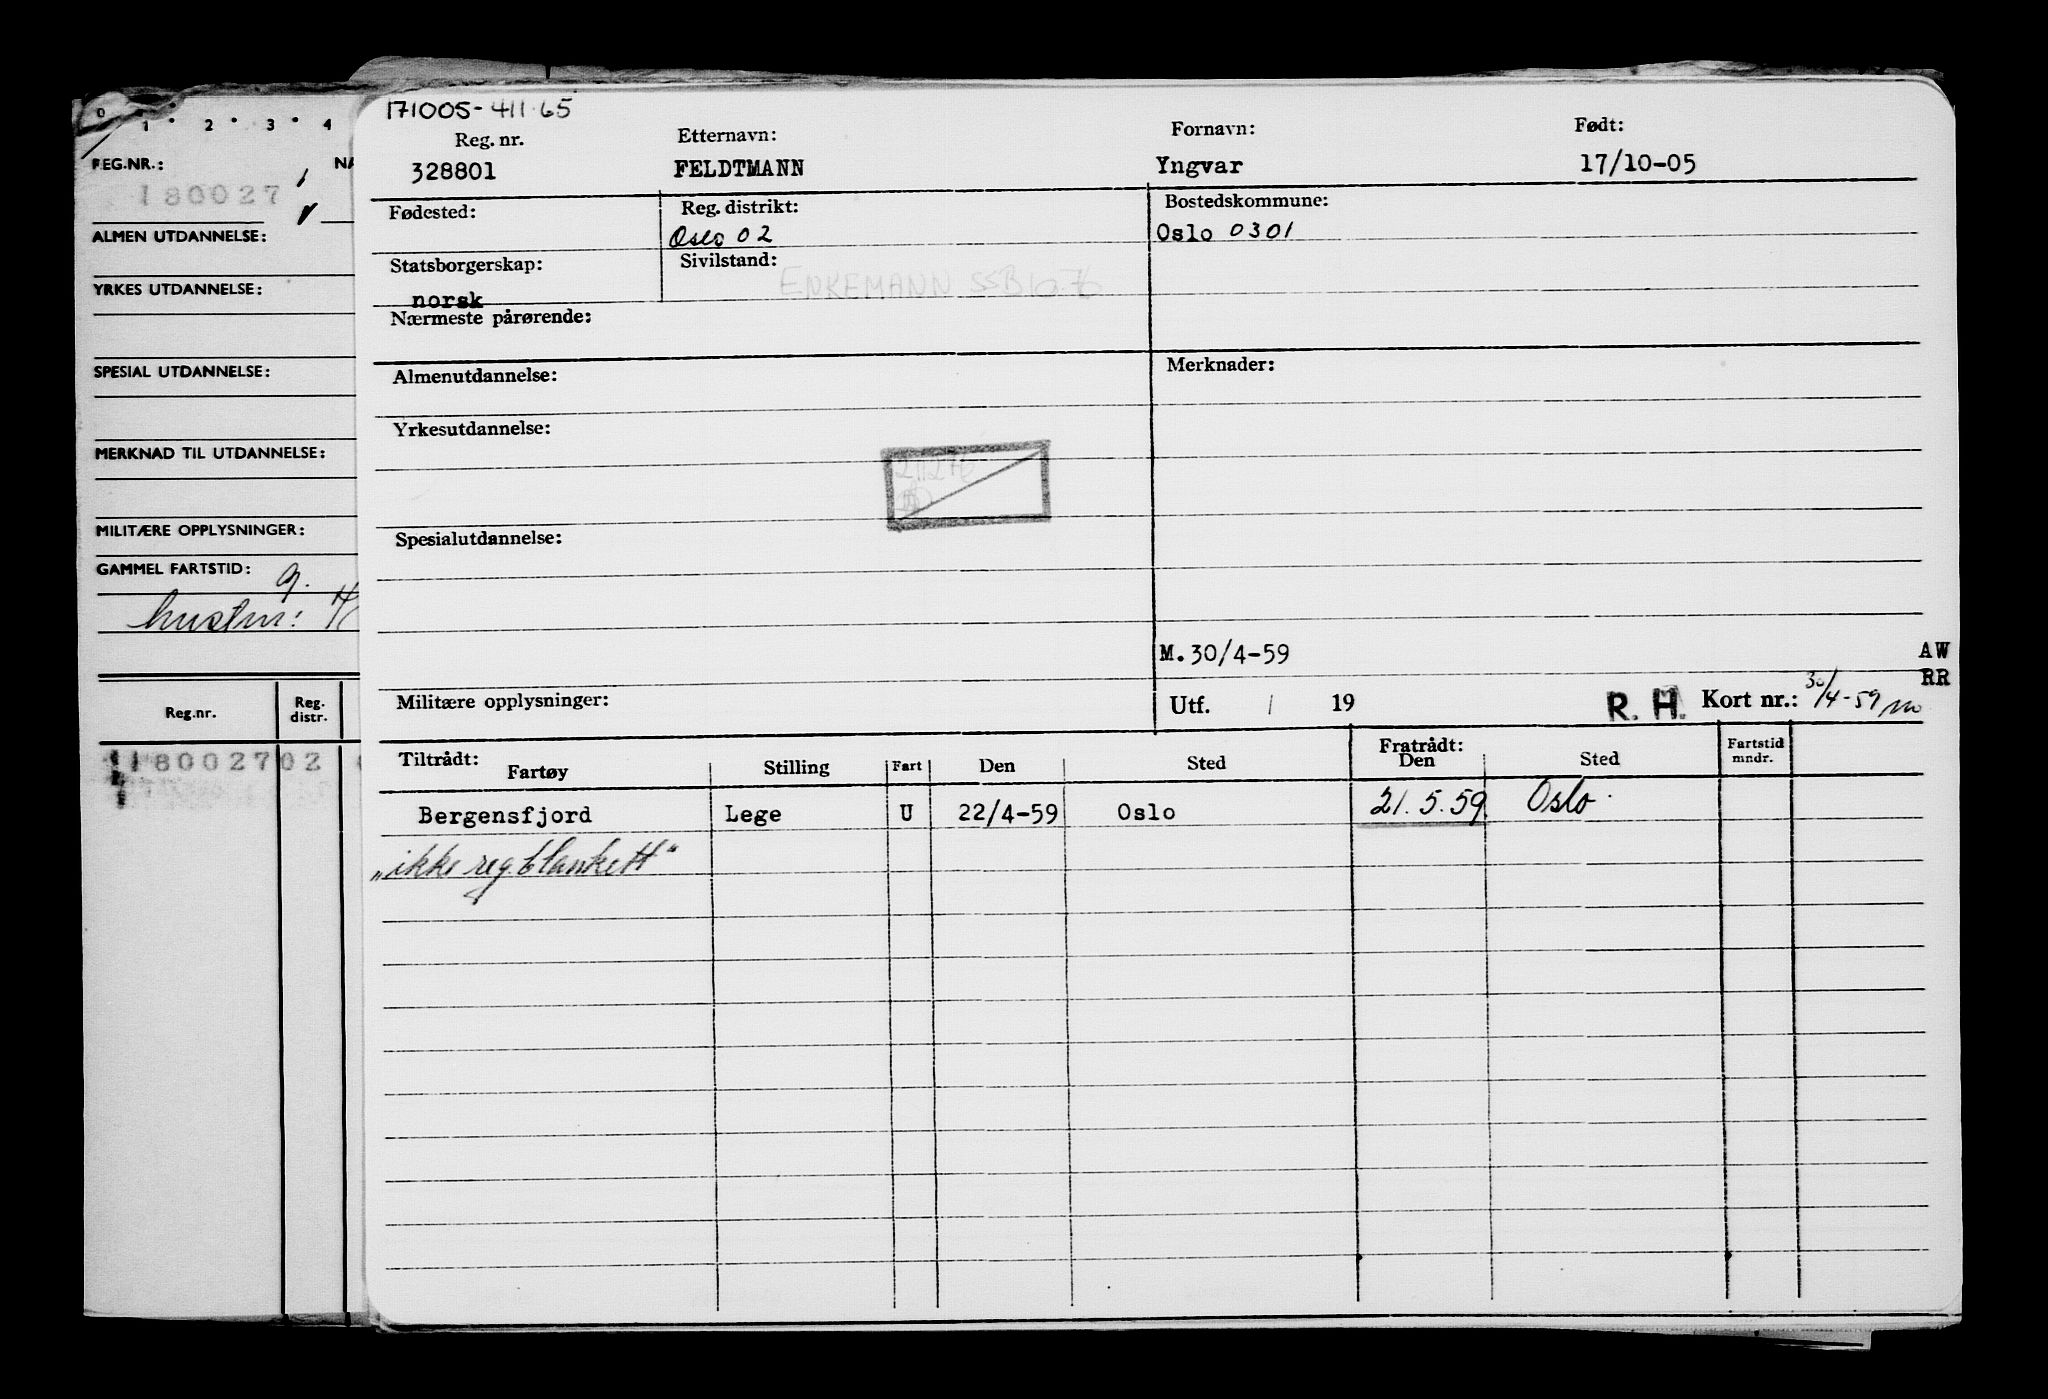 0 1 2 3 4
REG.NR.:
180027
ALMEN UTDANNELSE:
YRKES UTDANNELSE:
SPESIAL UTDANNELSE:
MERKNAD TIL UTDANNELSE:
MILITÆRE OPPLYSNINGER:
GAMMEL FARTSTID:
Reg.nr. Reg. distr.
180027 02
171005-411.65
Reg. nr. Etternavn: Fornavn: Født:
328801 FELDTMANN Yngvar 17/10-05
Fødested: Reg. distrikt: Bostedskommune:
Oslo 02 Oslo 0301
Statsborgerskap: Sivilstand:
norsk ENKEMANN SSB 10.76
Nærmeste pårørende:
Almenutdannelse: Merknader:
Yrkesutdannelse:
Spesialutdannelse:
M.30/4-59 AW
RR
Militære opplysninger: Utf. / 19 R. H. Kort nr.: 30/4-59
Tiltrådt: Fratrådt:
Fartøy Stilling Fart Den Sted Den Sted Fartstid mndr.
Bergensfjord Lege U 22/4-59 Oslo 21.5.59 Oslo
„ikke reg.blankett"